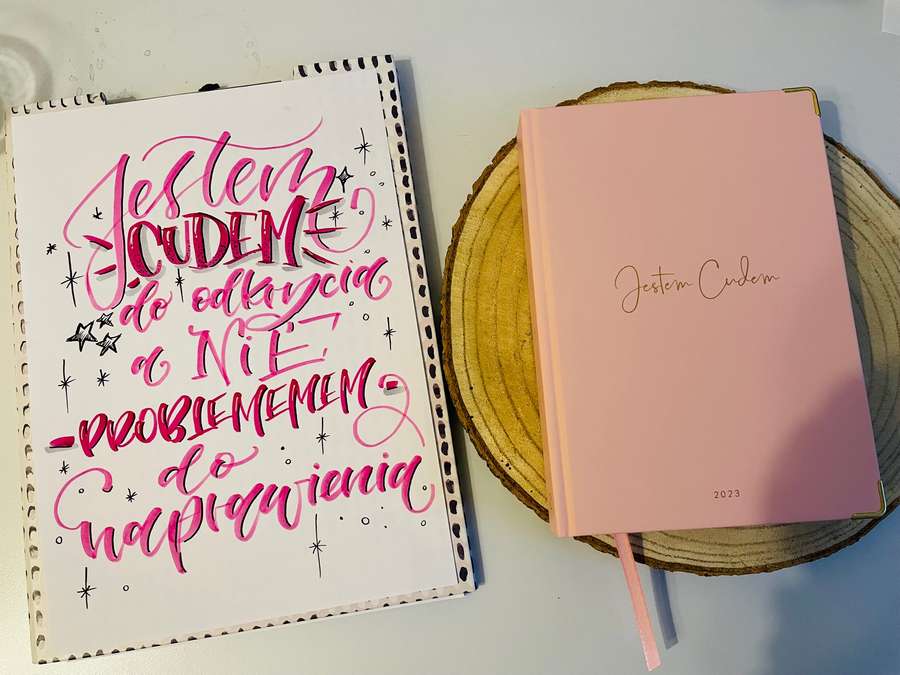 Jestem
CUDEM
do odkrycia
a NiE
-PROBLEMEMEM-
do
naprawienia
Jestem Cudem
2023